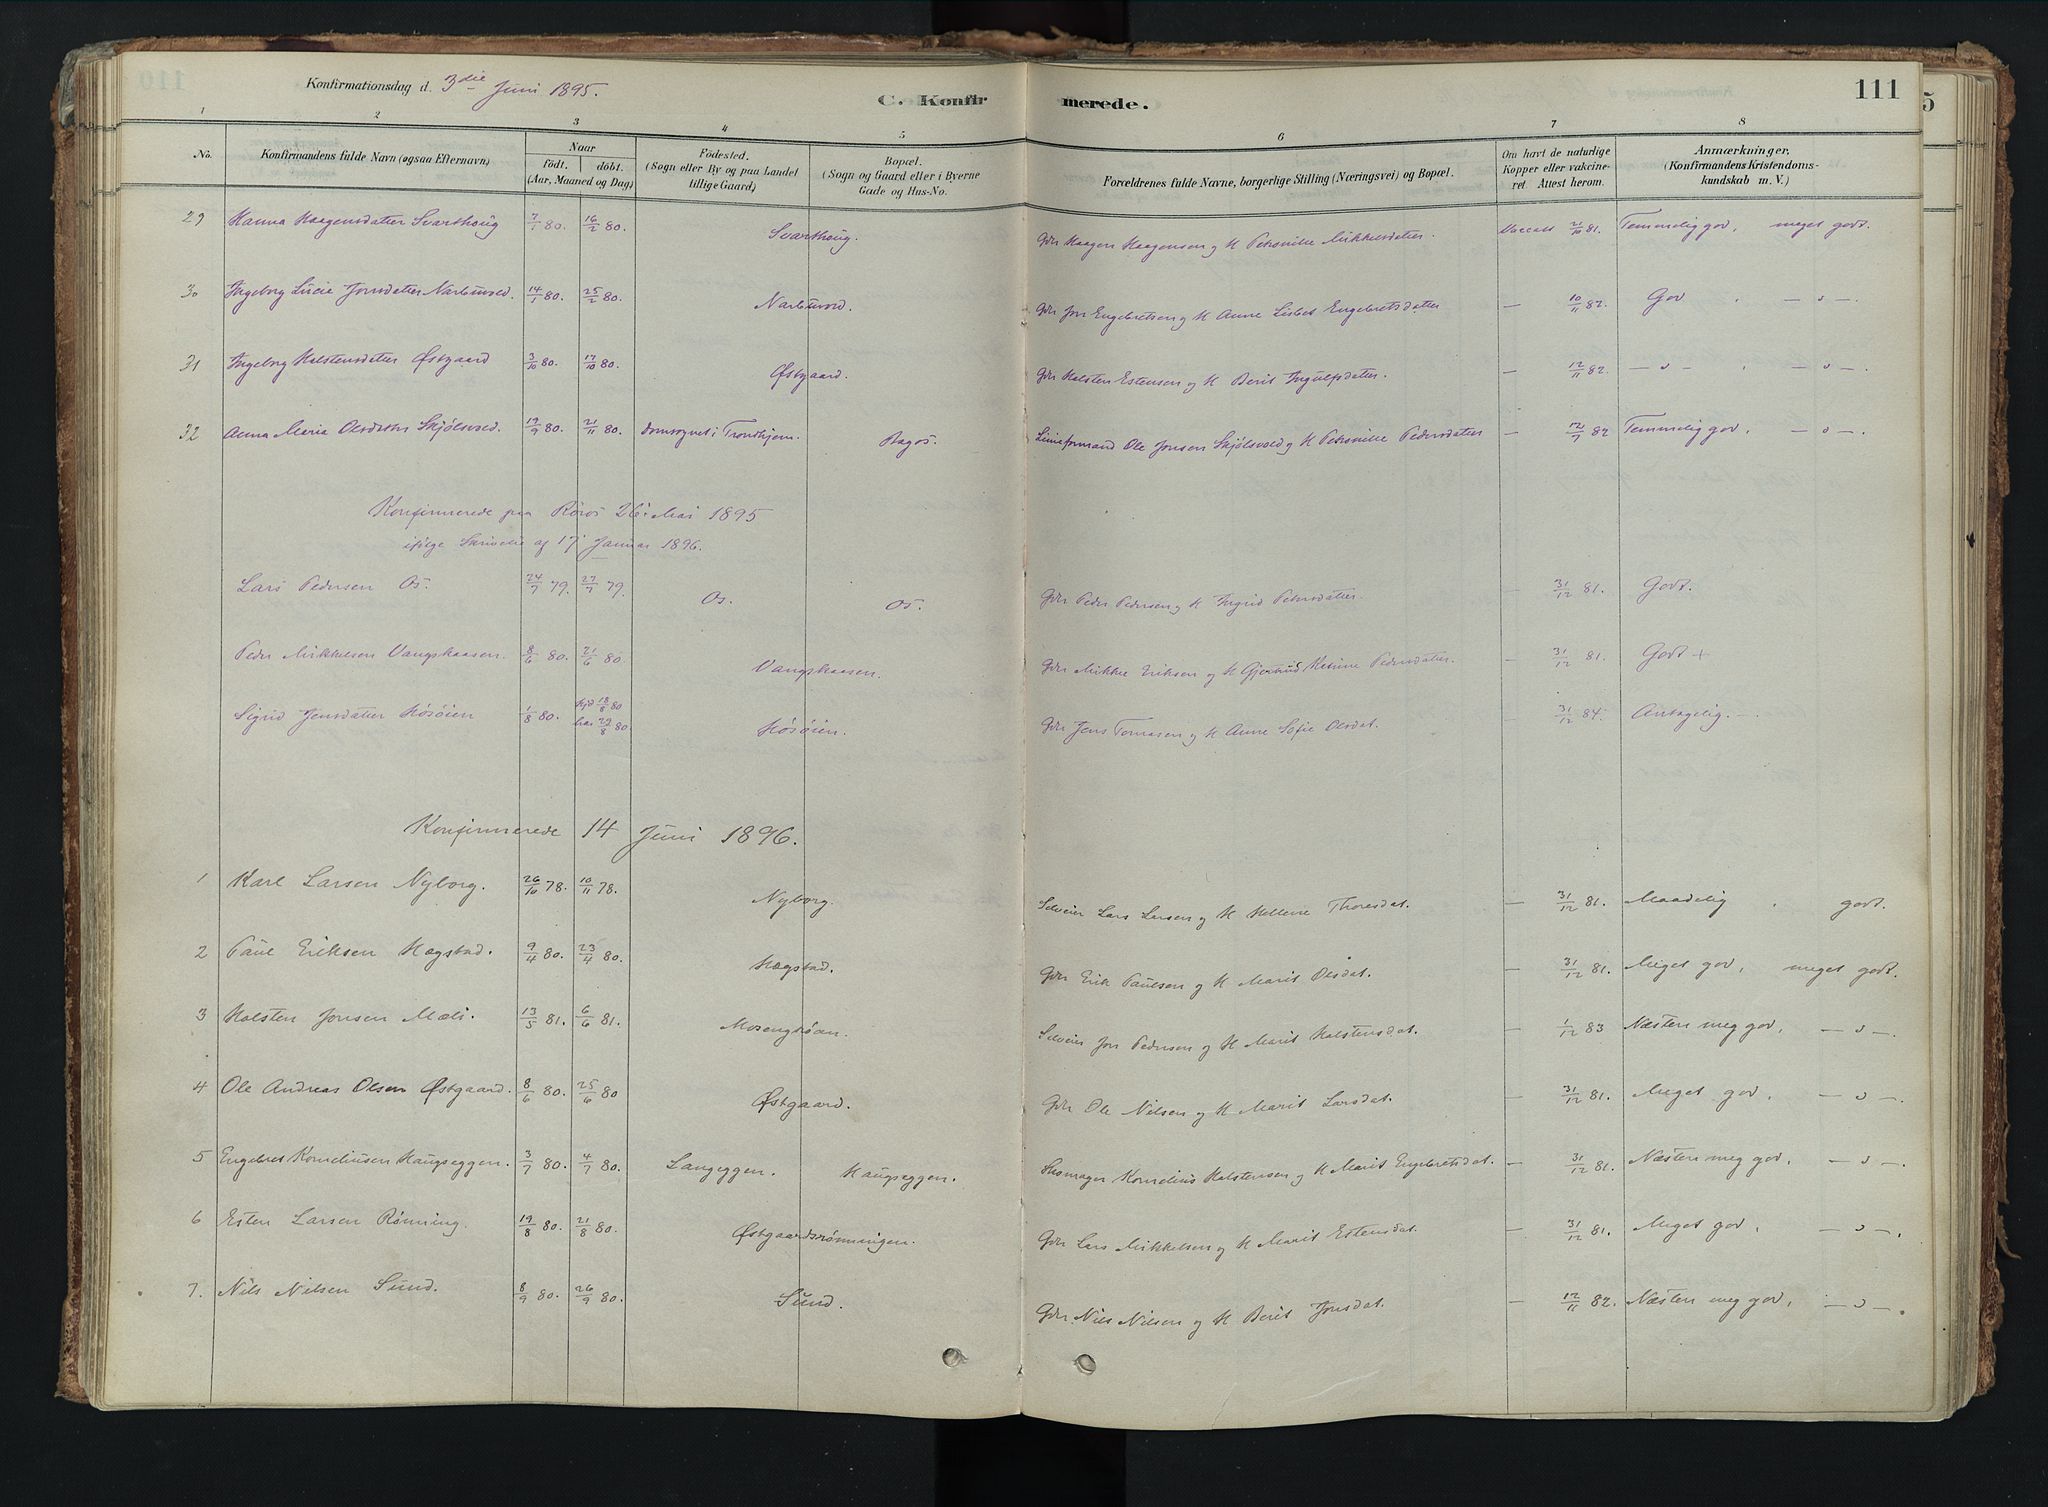 Konfirmationsdag d. 3die Juni 1895.
C. Konfirmerede.
111
1 2 3 4 5 6 7 8
No. Konfirmandens fulde Navn (ogsaa Efternavn) Naar født. døbt. (Aar, Maaned og Dag) Fødested. (Sogn eller By og paa Landet tillige Gaard) Bopæl. (Sogn og Gaard eller i Byerne Gade og Hus-No. Forældrenes fulde Navne, borgerlige Stilling (Næringsvei) og Bopæl. Om havt de naturlige Kopper eller vakcineret. Attest herom. Anmærkninger. (Konfirmandens Kristendomskundskab m. V.)
29 Hanna Haagensdatter Svarthoug 7/1 80. 16/2 80. Svarthoug. Gdr Haagen Haagensen og H Petronille Mikkelsdatter. Vaccat 21/10 81. Temmelig god, meget godt.
30 Ingeborg Lucie Jonsdatter Narbuvold. 14/1 80. 25/2 80. Narbuvold. Gdr Jon Engebretsen og H Anne Lisbet Engebretsdatter — 10/11 82. God , — " —.
31 Ingeborg Halstensdatter Østgaard 3/10 80. 17/10 80. Østgaard. Gdr Halsten Estensen og H Berit Ingulfsdatter. — 12/11 82. — " — , — " —.
32 Anna Maria Olsdatter Skjølsvold. 19/9 80. 21/11 80. domsognet i Tronthjem. Linieformand Ole Jonsen Skjølsvold og H Petronille Pedersdatter — 12/7 82 Temmelig god, — " —.
Konfirmerede paa Røros 26. Mai 1895
ifølge Skrivelse af 17 Januar 1896.
Lars Pedersen Os. 24/7 79. 27/7 79. Os. Os. Gdr Peder Pedersen og H Ingrid Petersdatter. — 31/12 81. Godt.
Peder Mikkelsen Vangskaasen. 8/6 80. 21/6 80. Vangskaasen. Gdr Mikkel Eriksen og H Gjertrud Kirstine Pedersdatter. — 31/12 81. Godt +
Sigrid Jensdatter Høsøien 1/8 80. hjd 18/8 80 29/8 80. Høsøien. Gdr Jens Tomasen og H Anne Sofie Olsdat. 31/12 84. Antagelig. —
Konfirmerede 14 Juni 1896.
1 Karl Larsen Nyborg. 26/10 78. 10/11 78. Nyborg. Selveier Lars Larsen og H Hellene Thoresdat. — 31/12 81. Maadelig , godt.
2 Paul Eriksen Hægstad. 9/4 80. 23/4 80. Hægstad. Gdr Erik Paulsen og H Marit Olsdat. — 31/12 81. Meget god, meget godt.
3 Halsten Jonsen Mæli. 13/5 81. 6/6 81. Mosengmoen. Selveier Jon Pedersen og H Marit Halstensdat. — 1/12 83 Næsten meg god, — " —.
4 Ole Andreas Olsen Østgaard. 8/6 80. 25/6 80 Østgaard. Gdr Ole Nilsen og H Marit Larsdat. — 31/12 81. Meget god, — " —.
5 Engebret Kornelinsen Haugseggen. 3/7 80. 4/7 80. Langeggen. Haugseggen. Husmager Kornelius Halstensen og H Marit Engebretsdat. — 31/12 81. Næsten meg god, — " —.
6 Esten Larsen Rønning. 19/8 80. 21/8 80. Østgaardsrønningen. Gdr Lars Mikkelsen og H Marit Estensdat. — 31/12 81. Meget god, — " —.
7. Nils Nilsen Sund. 8/9 80. 26/9 80. Sund. Gdr Nils Nilsen og H Berit Jonsdat. — 12/11 82. Næsten meg god, — " —.